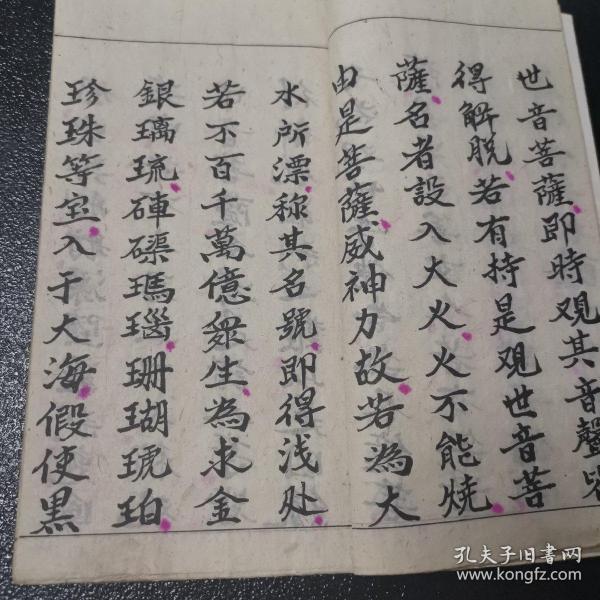 世音菩薩即時观其音聲皆
得解脱若有持是观世音菩
薩名者設入大火火不能燒
由是菩薩威神力故若為大
水所漂称其名號即得浅处
若不百千萬億眾生為求金
銀璃琉硨磲瑪瑙珊瑚琥珀
珍珠等宝入于大海假使黑
孔夫子旧书网
www.kongfz.com